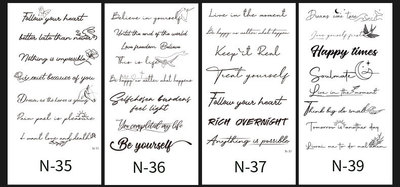 Follow your heart
better late than never
Nothing is impossible
exist because of you
Dream as the lover is young
Pure pool is pleasure
N-35
Believe in yourself
Until the end of the world
Love freedom Believe
This is life
Be happy no matter what happens
Selfchosen burdens
feel light
You completed my life
Be yourself
N-36
Live in the moment
Be happy no matter what happens
Keep it Real
Treat yourself
Follow your heart
RICH OVERNIGHT
Anything is possible
N-37
Happy times
Soulmate
Live in the moment
Think big do small
Tomorrow is another day
N-39